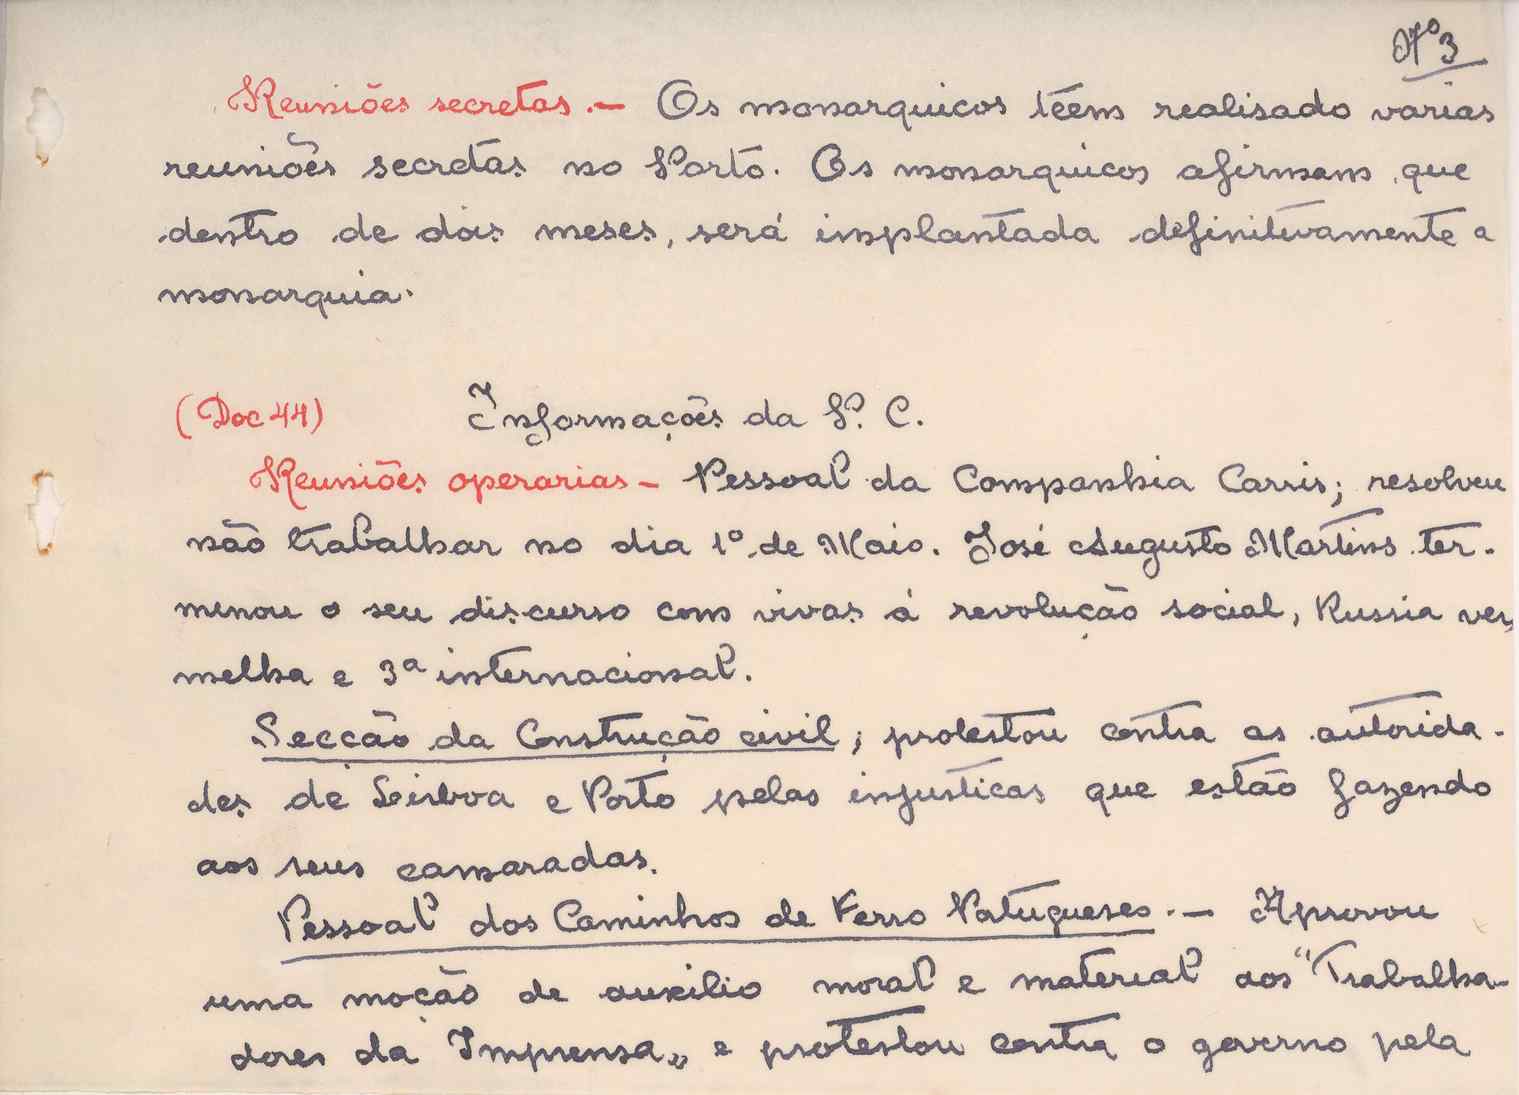 Nº 3
Reuniões secretas.- Os monarquicos téem realisado varias
reuniões secretas no Porto. Os monarquicos afirmam que
dentro de dois meses, será implantada definitivamente a
monarquia.
(Doc 44) Informações da P. C.
Reuniões operarias - Pessoal da Companhia Carris; resolveu
não trabalhar no dia 1º de Maio. José Augusto Martins ter-
minou o seu discurso com vivas á revolução social, Russia ver-
melha e 3ª internacional.
Secção da Construção civil; protestou contra as autorida-
des de Lisboa e Porto pelas injusticas que estão fazendo
aos seus camaradas.
Pessoal dos Caminhos de Ferro Portugueses.- Aprovou
uma moção de auxilio moral e material aos "Trabalha-
dores da Imprensa" e protestou contra o governo pela